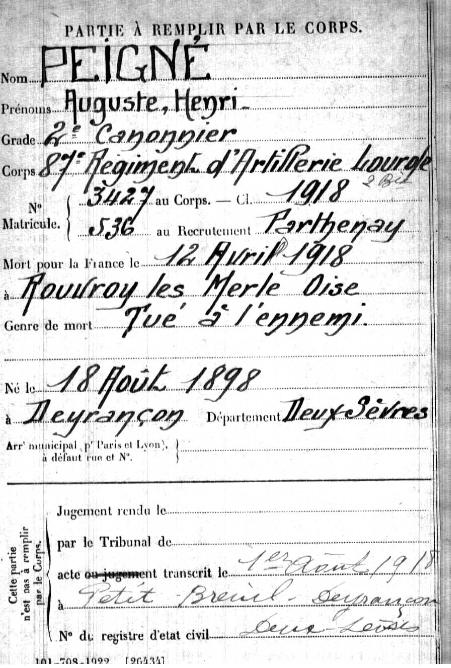 PARTIE À REMPLIR PAR LE CORPS.
Nom PEIGNÉ
Prénoms Auguste, Henri
Grade 2e Canonnier
Corps 87e Régiment d'Artillerie Lourde
2e Bie
N° Matricule. { 3427 au Corps. — Cl. 1918
536 au Recrutement Parthenay
Mort pour la France le 12 Avril 1918
à Rouvroy les Merle Oise
Genre de mort Tué à l'ennemi.
Né le 18 Août 1898
à Deyrançon Département Deux-Sèvres
Arrt municipal (pr Paris et Lyon),
à défaut rue et N°.
Cette partie n'est pas à remplir par le Corps.
Jugement rendu le
par le Tribunal de
acte ou jugement transcrit le 1er Août 1918
à Petit Breuil - Deyrançon
N° du registre d'état civil Deux Sèvres
101-708-1922. [26434]